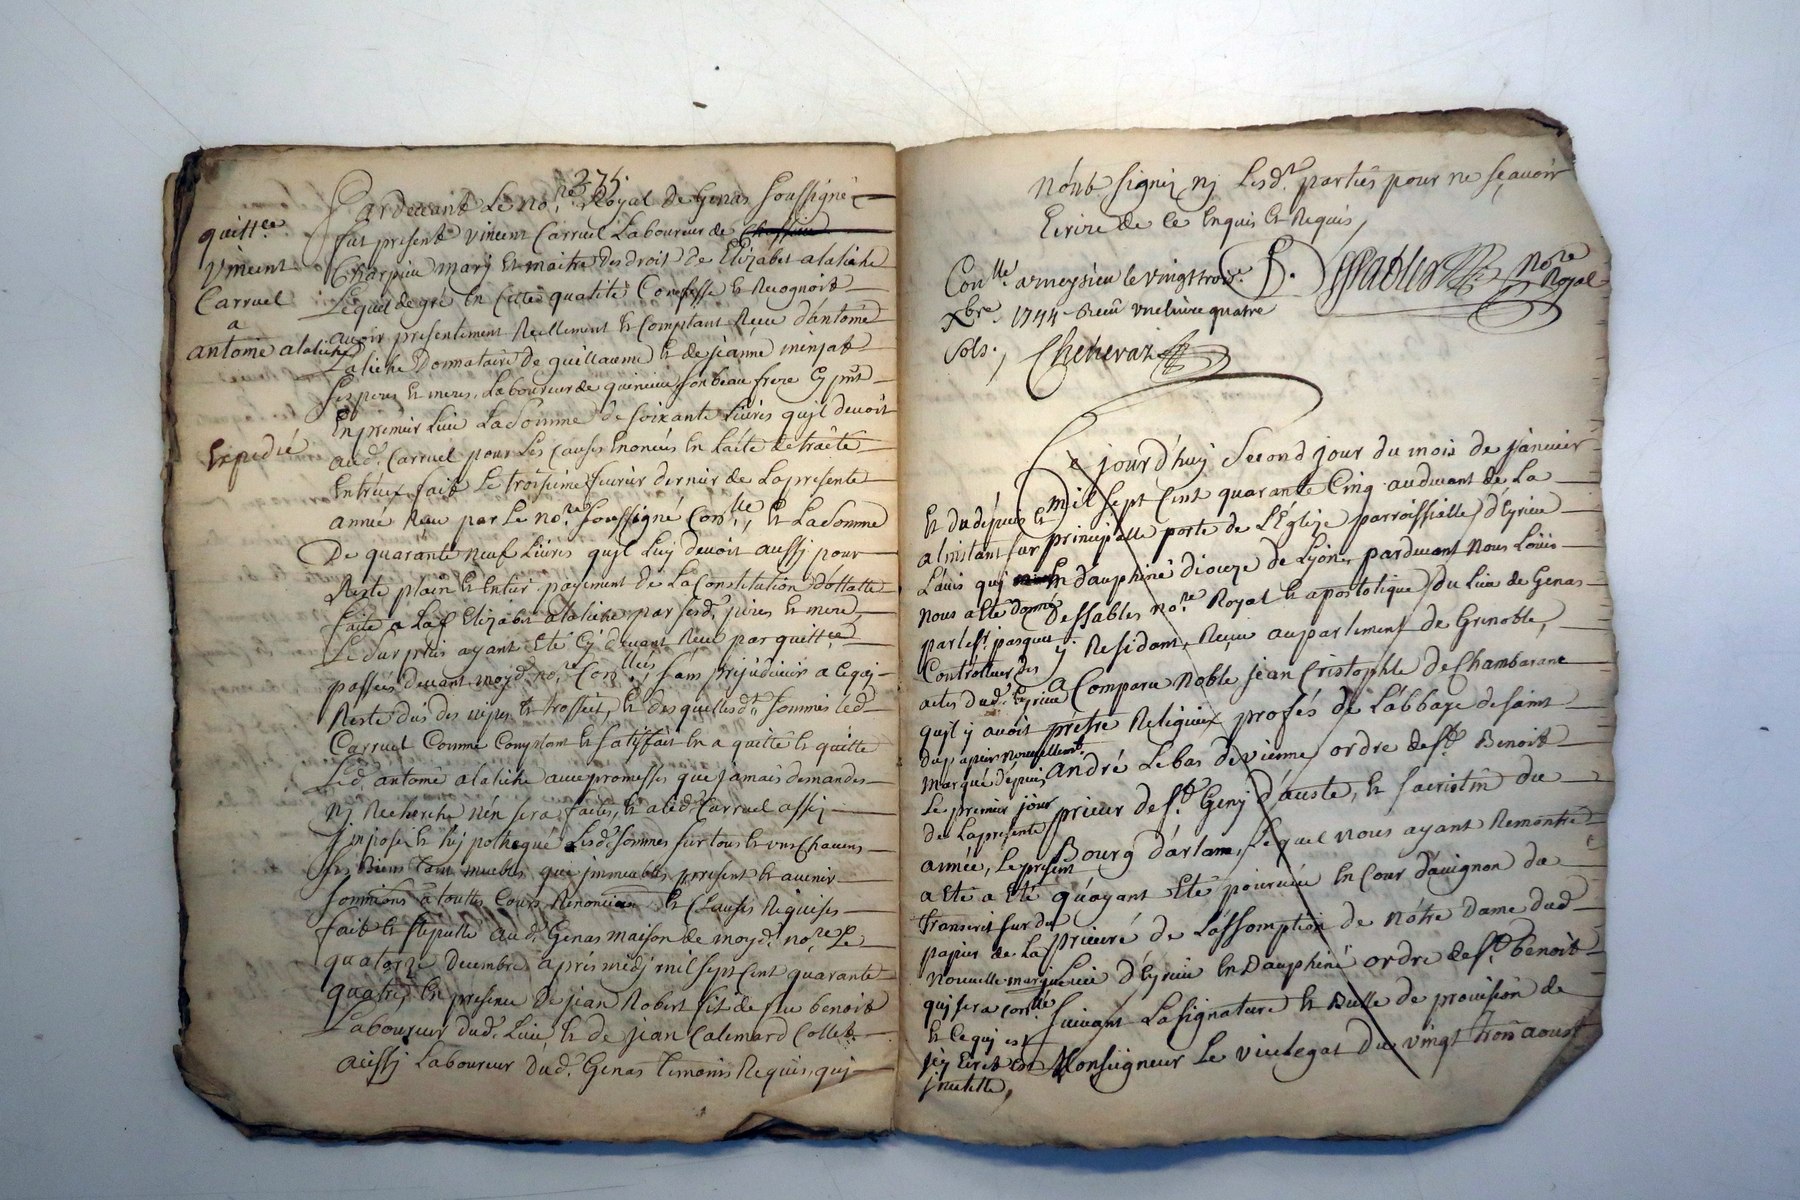 275.
Pardevant Le no.re Royal de Genas soussigné
fut present vincent Carruel Laboureur de
Charpieu mary et maitre des droit de Elizabet alatiche
Lequel de gré en cette qualité Confesse et Recognoit
avoir presentement Reellement et Comptant Reçu d'antoine
alatiche Donnataire de guillaume et de jeanne
ses peres et meres, Laboureur de son beau frere Cy pnt
En premier Lieu La Somme de soixante Livres qu'jl devoit
aud. Carruel pour Les Causes Enoncées En Lacte de traité
Entreux fait Le troisieme fevrier dernier de La presente
année Reçu par Le no.re Soussigné Con.llé, Et La Somme
De quarante neuf Livres qu'jl Luy devoit aussj pour
Reste plain et Entier payement de La Constitution dottalle
faite a La d. Elizabet alatiche par sesd. peres et mere
Le surplus ayant Eté Cy devant Reçu par quitt.ce
passées devant moyd. no.re Con.llées, sans prejudicier a Ceqj
Reste dû des nipes et trossel, Et desquelles d. sommes led.
Carruel Comme Comptant et satisfait En a quitté et quitte
Led. antoine alatiche avec promesses que jamais demandes
Nj Recherche n'en sera faites, et a led. Carruel assj
jmposé et hypothequé Lesd. sommes sur tous et uns Chacuns
ses Biens tant meubles que jmmeubles present et avenir
soumissions a touttes Cours Renonciaōn et Clauses Requises
fait et stipullé aud. Genas maison de moyd. no.re Le
quatorze decembre aprés mëdj mil sept Cent quarante
quatre, En presence De jean Robert fils de feu benoit
Laboureur dud. Lieu, et de jean Calemard Collet
aussj Laboureur dud. Genas Temoins Requis, qui
quitt.ce
Vincent
Carruel
a
antoine alatiche
Expedié
n'ont signé nj Lesd. parties pour ne sçavoir
Ecrire de Ce Enquis et Requis,
Con.llé a meysieu le vingt trois
Xbre 1744 Reçu une livre quatre
sols.,
No.re
Royal
Ce jourd'huy second jour du mois de janvier
mil sept Cent quarante Cinq audevant de La
principalle porte de L'Eglize parroissielle d'Eyrieu
En dauphiné diocize de Lyon, pardevant Nous Loüis
Dessables no.re Royal et apostolique du Lieu de Genas
ÿ Residant, Reçu au parlement de Grenoble,
a Comparu Noble jean Cristophle de Chambarant
prestre Religieux profés de L'abbaye de saint
André Lebas de vienne ordre de St. Benoit
prieur de St. Genj d'auste, et sacristin du
Bourg d'arlam, Lequel nous ayant Remontré
qu'ayant Eté pourvu En Cour d'avignon du
prieuré de L'assomption de nôtre Dame dud.
Lieu d'Eyrieu En Dauphiné ordre de St. benoit
suivant La signature Et Bulle de provision de
Monseigneur Le vicelegat Du vingt trois aoust
Et du depuis et
a linstant sur
L'avis quj En
nous a Eté donné
par le Sr. pasquet
Contrôlleur des
actes dud. Eyrieu
qu'jl y avoit
du papier nouvellemt.
marqué depuis
Le premier jour
de La presente
année, Le present
a Eté a Eté
transcrit sur du
papier de La
Nouvelle marque
qui sera con.llé
et Ce quj est
jcy Ecrit Est
jnutille,